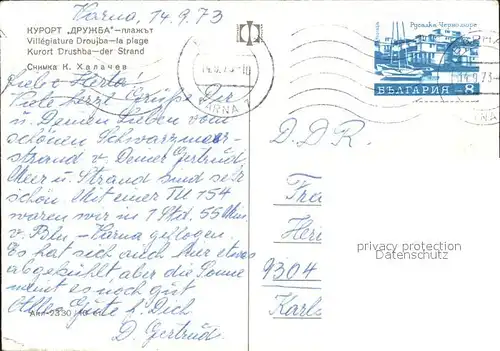 Varna, 14.9.73
КУРОРТ „ДРУЖБА"—плажът
Villégiature Droujba—la plage
Kurort Drushba—der Strand
Снимка К. Халачев
Liebe Herta!
Viele herzl. Grüsse Dir
u. Deinen Lieben vom
schönen Schwarzmeer-
strand v. Deiner Gertrud.
Meer u. Strand sind sehr
schön. Mit einer TU 154
waren wir in 1 Std. 55 Min.
v. Bln - Varna geflogen.
Es hat sich auch hier etwas
abgekühlt aber die Sonne
meint es noch gut
Alles Gute f. Dich
D. Gertrud
14.9.73-10
VARNA
Русалка-Черно море
БЪЛГАРИЯ 8
D.D.R.
9304
privacy protection
AnsichtskartenVersand.com